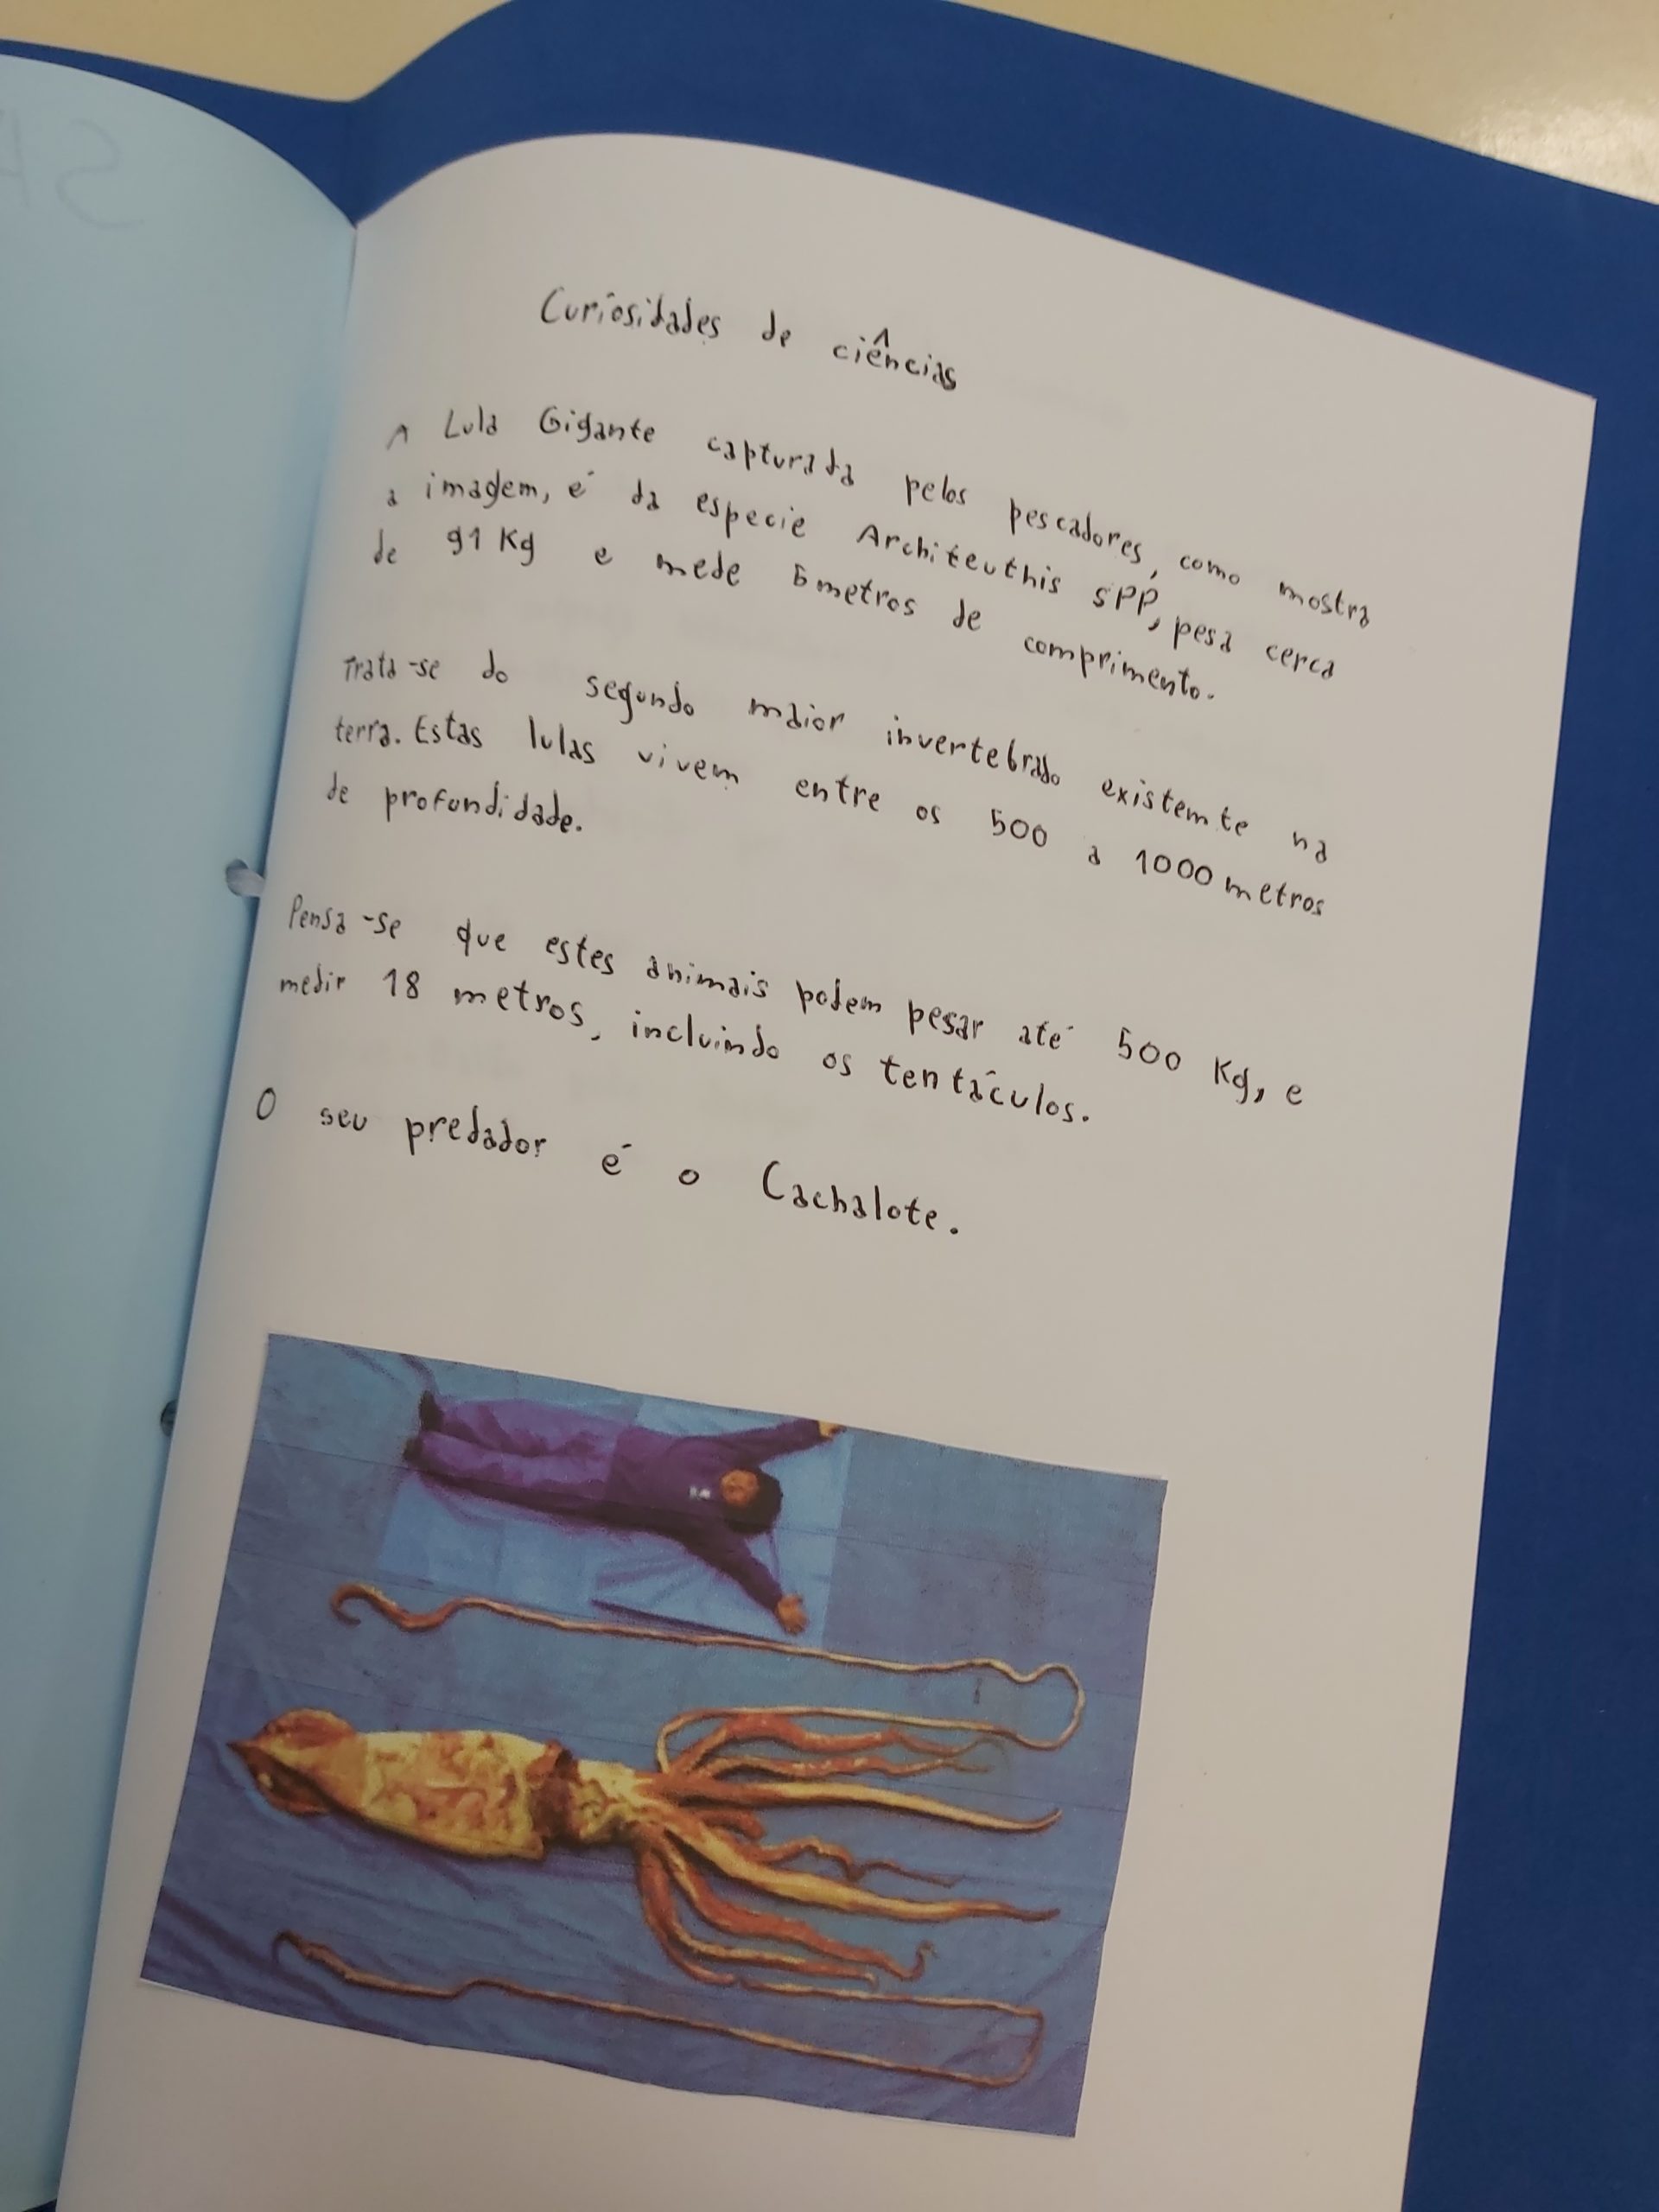 Curiosidades de ciências
A Lula Gigante capturada pelos pescadores, como mostra
a imagem, é da especie Architeuthis SPP, pesa cerca
de 91 Kg e mede 5 metros de comprimento.
Trata-se do segundo maior invertebrado existemte na
terra. Estas lulas vivem entre os 500 a 1000 metros
de profundidade.
Pensa-se que estes animais podem pesar até 500 Kg, e
medir 18 metros, incluindo os tentáculos.
O seu predador é o Cachalote.